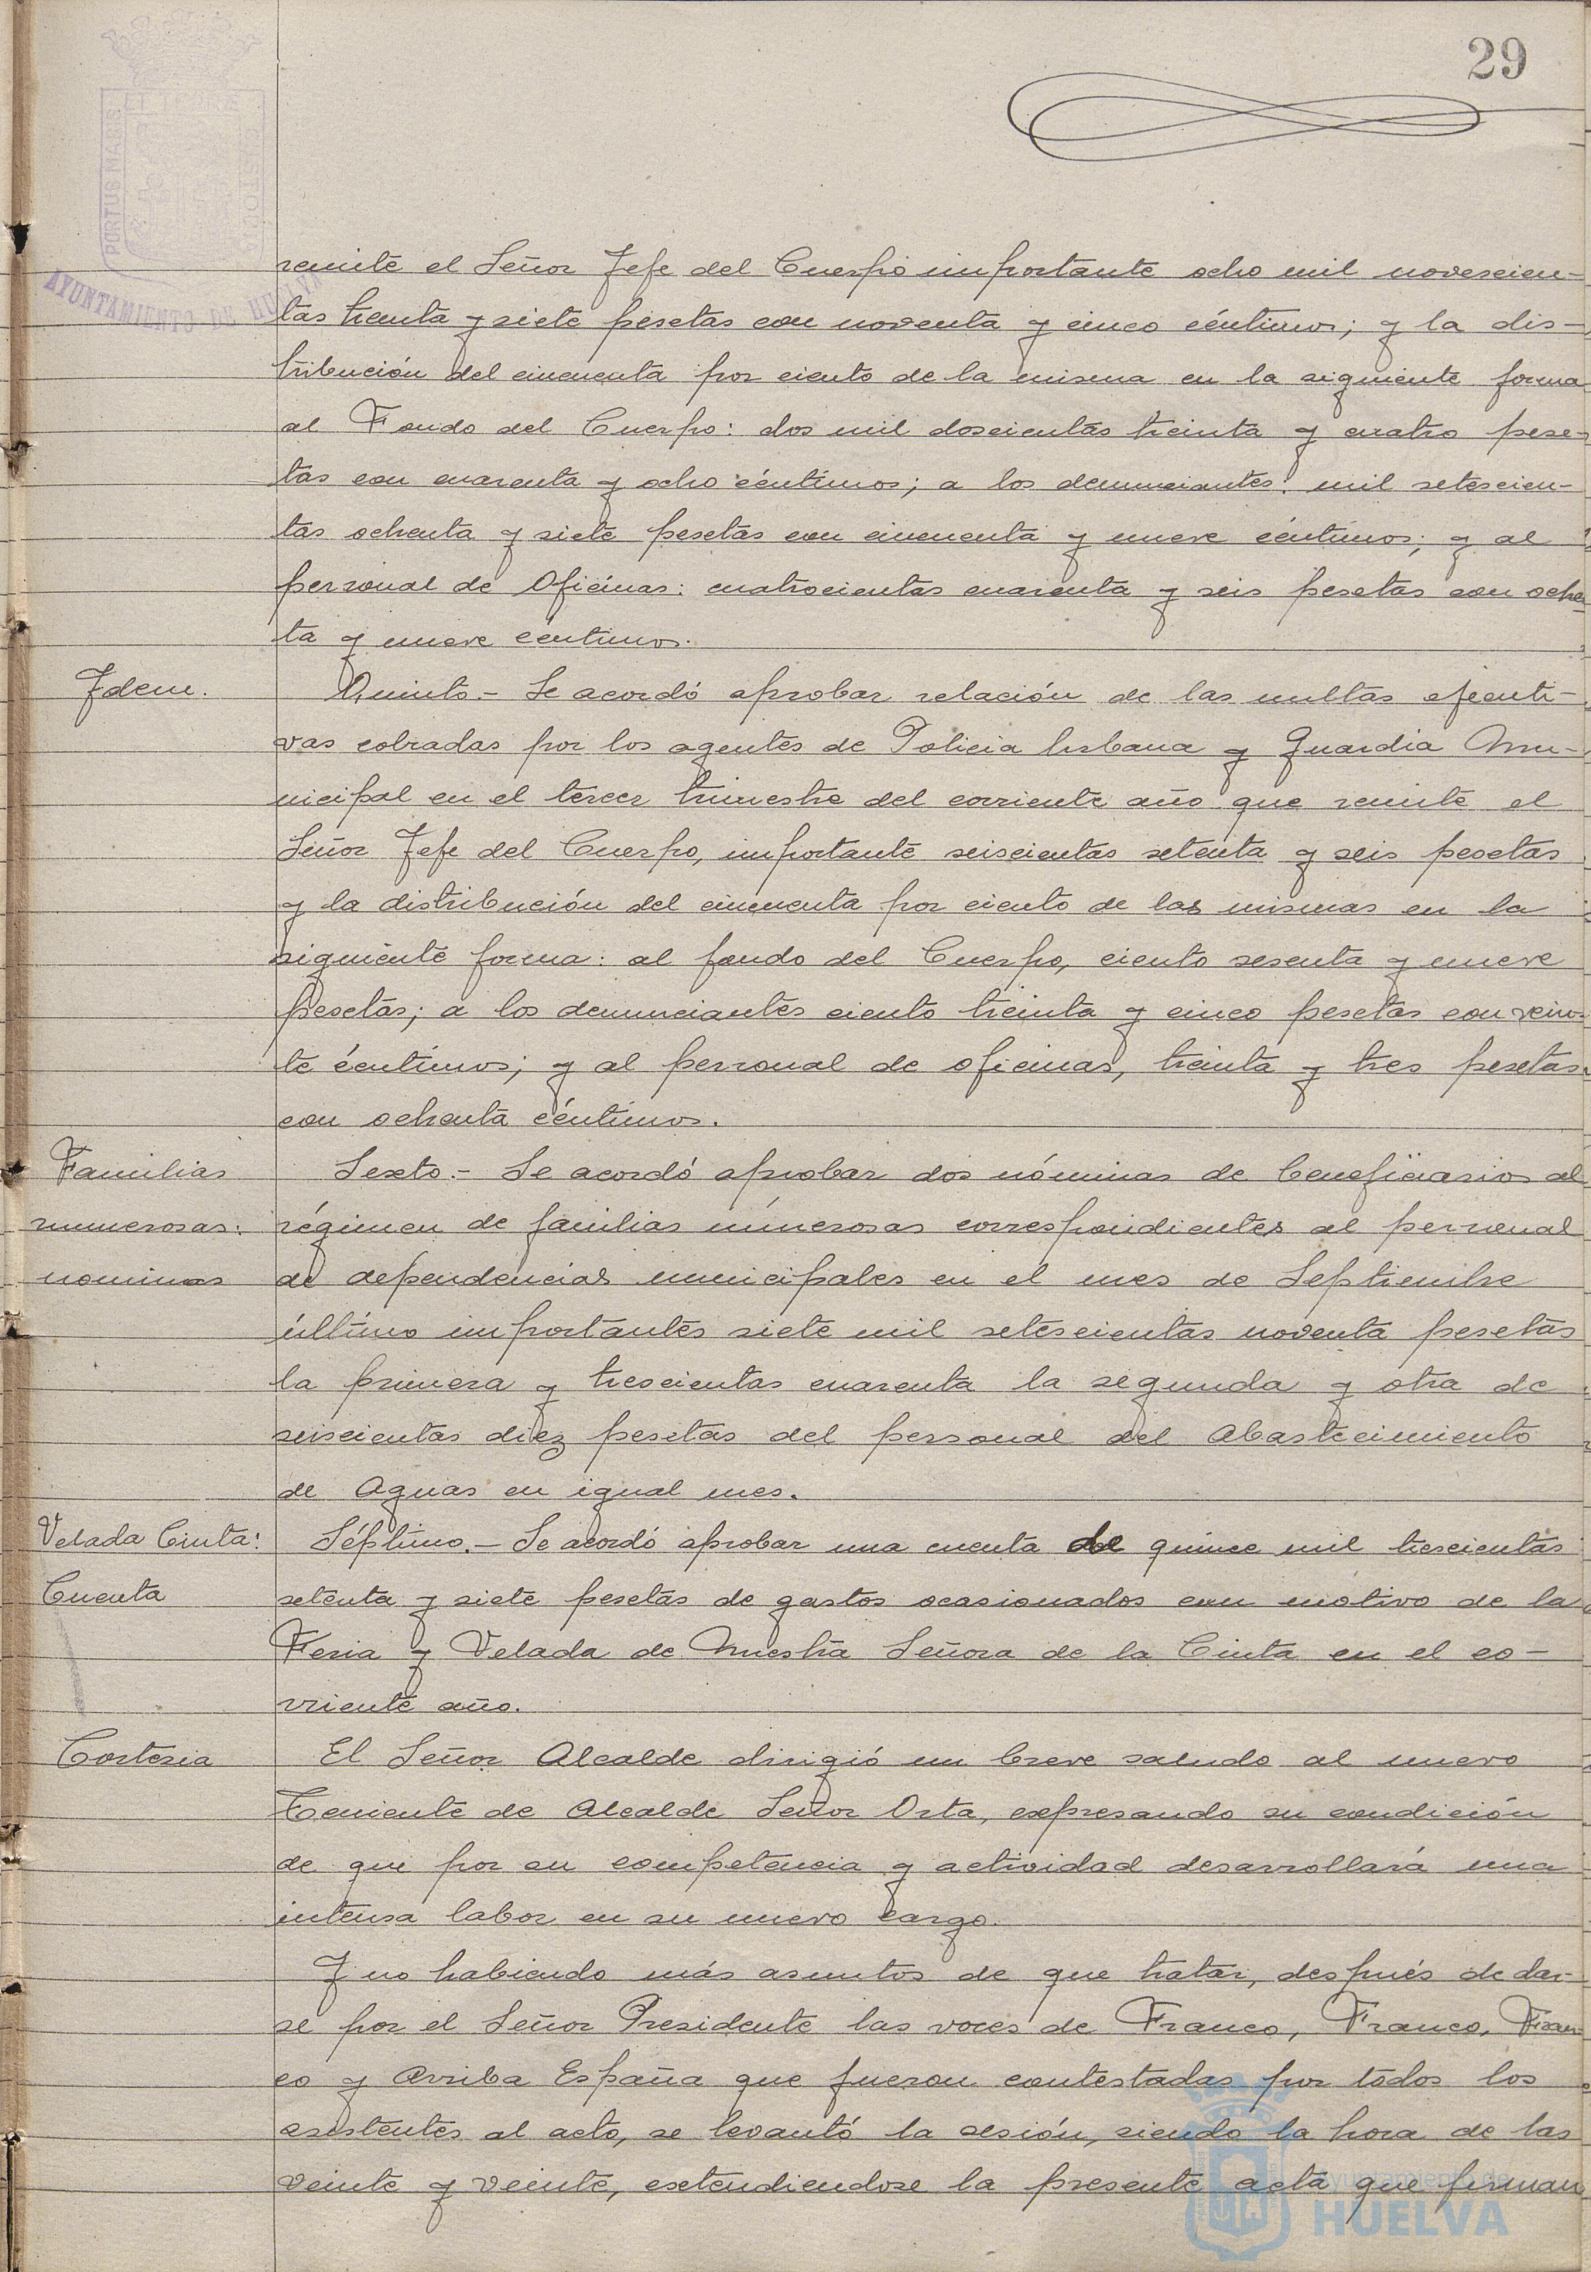 29
PORTUS MARIS
ET TERRÆ
CUSTODIA
AYUNTAMIENTO DE HUELVA
remite el Señor Jefe del Cuerpo importante ocho mil novescien-
tas treinta y siete pesetas con noventa y cinco céntimos; y la dis-
tribución del cincuenta por ciento de la misma en la siguiente forma
al Fondo del Cuerpo: dos mil doscientas treinta y cuatro pese-
tas con cuarenta y ocho céntimos; a los denunciantes: mil setescien-
tas ochenta y siete pesetas con cincuenta y nueve céntimos; y al
personal de Oficinas: cuatrocientas cuarenta y seis pesetas con ochen
ta y nueve céntimos.
Idem.
Quinto.- Se acordó aprobar relación de las multas ejecuti-
vas cobradas por los agentes de Policia Urbana y Guardia Mu-
nicipal en el tercer trimestre del corriente año que remite el
Señor Jefe del Cuerpo, importante seiscientas setenta y seis pesetas
y la distribución del cincuenta por ciento de las mismas en la
siguiente forma: al fondo del Cuerpo, ciento sesenta y nueve
pesetas; a los denunciantes ciento treinta y cinco pesetas con vein-
te céntimos; y al personal de oficinas, treinta y tres pesetas
con ochenta céntimos.
Familias
numerosas:
nominas
Sexto.- Se acordó aprobar dos nóminas de beneficiarios al
régimen de familias númerosas correspondientes al personal
de dependencias municipales en el mes de Septiembre
último importantes siete mil setescientas noventa pesetas
la primera y trescientas cuarenta la segunda y otra de
seiscientas diez pesetas del personal del Abastecimiento
de Aguas en igual mes.
Velada Cinta:
Cuenta
Séptimo.- Se acordó aprobar una cuenta de quince mil trescientas
setenta y siete pesetas de gastos ocasionados con motivo de la
Feria y Velada de Nuestra Señora de la Cinta en el co-
rriente año.
Cortesia
El Señor Alcalde dirigió un breve saludo al nuevo
Teniente de Alcalde Señor Orta, expresando su condición
de que por su competencia y actividad desarrollará una
intensa labor en su nuevo cargo.
Y no habiendo más asuntos de que tratar, después de dar-
se por el Señor Presidente las voces de Franco, Franco, Fran
co y Arriba España que fueron contestadas por todos los
asistentes al acto, se levantó la sesión, siendo la hora de las
veinte y veinte, extendiendose la presente acta que firman
Ayuntamiento de
HUELVA